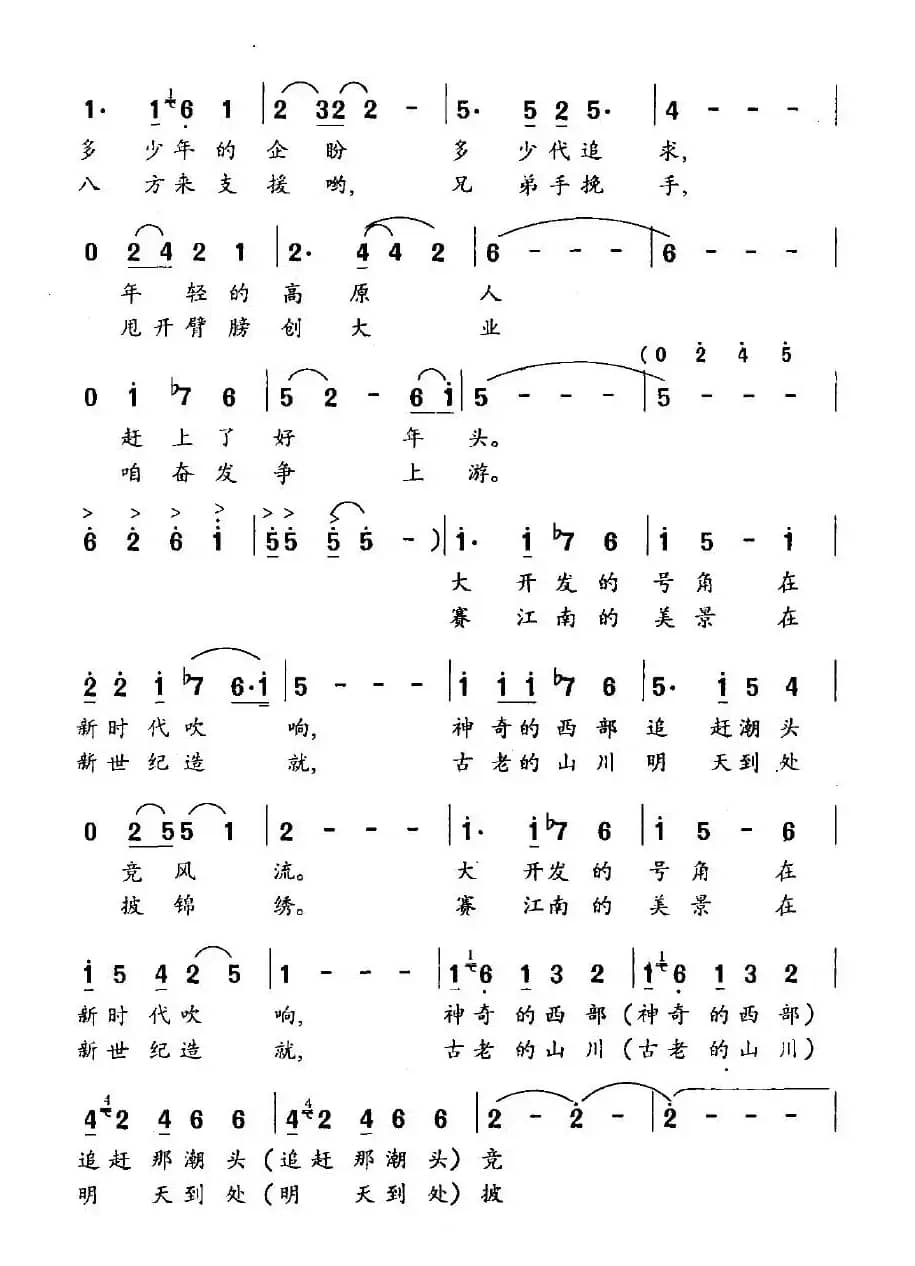 1· 1 6 1 | 2 32 2 - | 5· 5 2 5· | 4 - - - |
多 少年的企 盼 多 少代追 求,
八 方来支援哟, 兄 弟手挽 手,
0 2 4 2 1 | 2· 4 4 2 | 6 - - - | 6 - - - |
年 轻的高 原 人
甩开臂膀创大 业
(0 2 4 5
0 1 ♭7 6 | 5 2 - 6 1 | 5 - - - | 5 - - -
赶上了好 年 头。
咱奋发争 上 游。
6 2 6 1 | 5 5 5 5 - ) | 1· 1 ♭7 6 | 1 5 - 1 |
大 开发的号角 在
赛 江南的美景 在
2 2 1 ♭7 6·1 | 5 - - - | 1 1 1 ♭7 6 | 5· 1 5 4 |
新时代吹 响, 神奇的西部 追 赶潮头
新世纪造 就, 古老的山川 明 天到处
0 2 5 5 1 | 2 - - - | 1· 1 ♭7 6 | 1 5 - 6 |
竞风 流。 大 开发的号角 在
披锦 绣。 赛 江南的美景 在
1 5 4 2 5 | 1 - - - | 1 6 1 3 2 | 1 6 1 3 2 |
新时代吹 响, 神奇的西部(神奇的西部)
新世纪造 就, 古老的山川(古老的山川)
4 2 4 6 6 | 4 2 4 6 6 | 2 - 2 - | 2 - - - |
追赶那潮头(追赶那潮头)竞
明 天到处(明 天到处)披